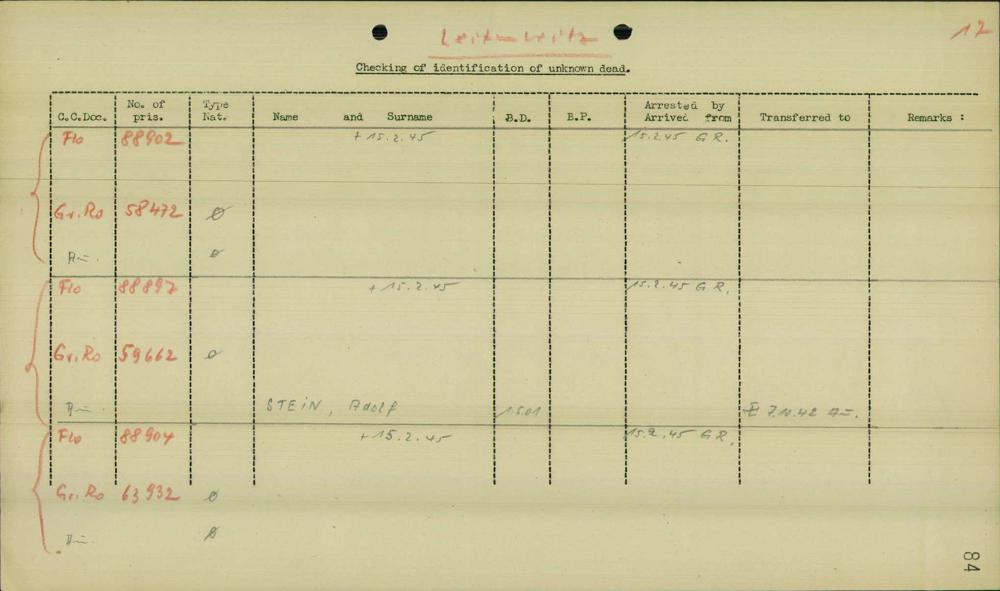 Leitmeritz
17
Checking of identification of unknown dead.
C.C.Doc. No. of pris. Type Nat. Name and Surname B.D. B.P. Arrested by Arrived from Transferred to Remarks :
Flo 88902 + 15.2.45 15.2.45 G R.
Gr. Ro 58472 Ø
Ø
Flo 88897 + 15.2.45 15.2.45 G R.
Gr. Ro 59662 Ø
STEIN, Adolf 1.5.01 7.10.42
Flo 88904 + 15.2.45 15.2.45 G R.
Gr. Ro 63932 Ø
Ø
84